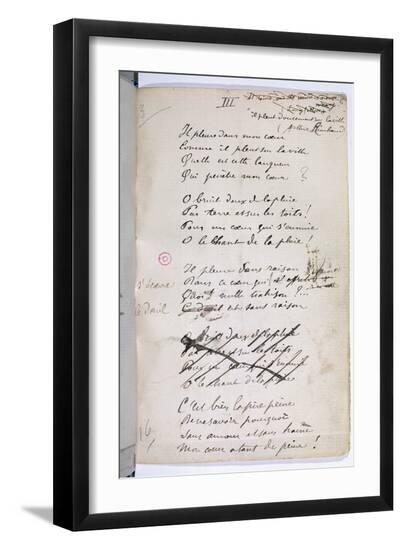 III
Longfellow
il pleut doucement sur la ville
(Arthur Rimbaud
Il pleure dans mon cœur
Comme il pleut sur la ville
Quelle est cette langueur
Qui pénètre mon cœur ?
O bruit doux de la pluie
Par terre et sur les toits !
Pour un cœur qui s'ennuie
O le chant de la pluie !
Il pleure sans raison
Dans ce cœur qui s'
Quoi ! nulle trahison ? ...
Ce deuil est sans raison
O bruit doux de la pluie
Par terre et sur les toits
Pour un cœur qui s'ennuie
O le chant de la pluie
C'est bien la pire peine
De ne savoir pourquoi
Sans amour et sans haine
Mon cœur a tant de peine !